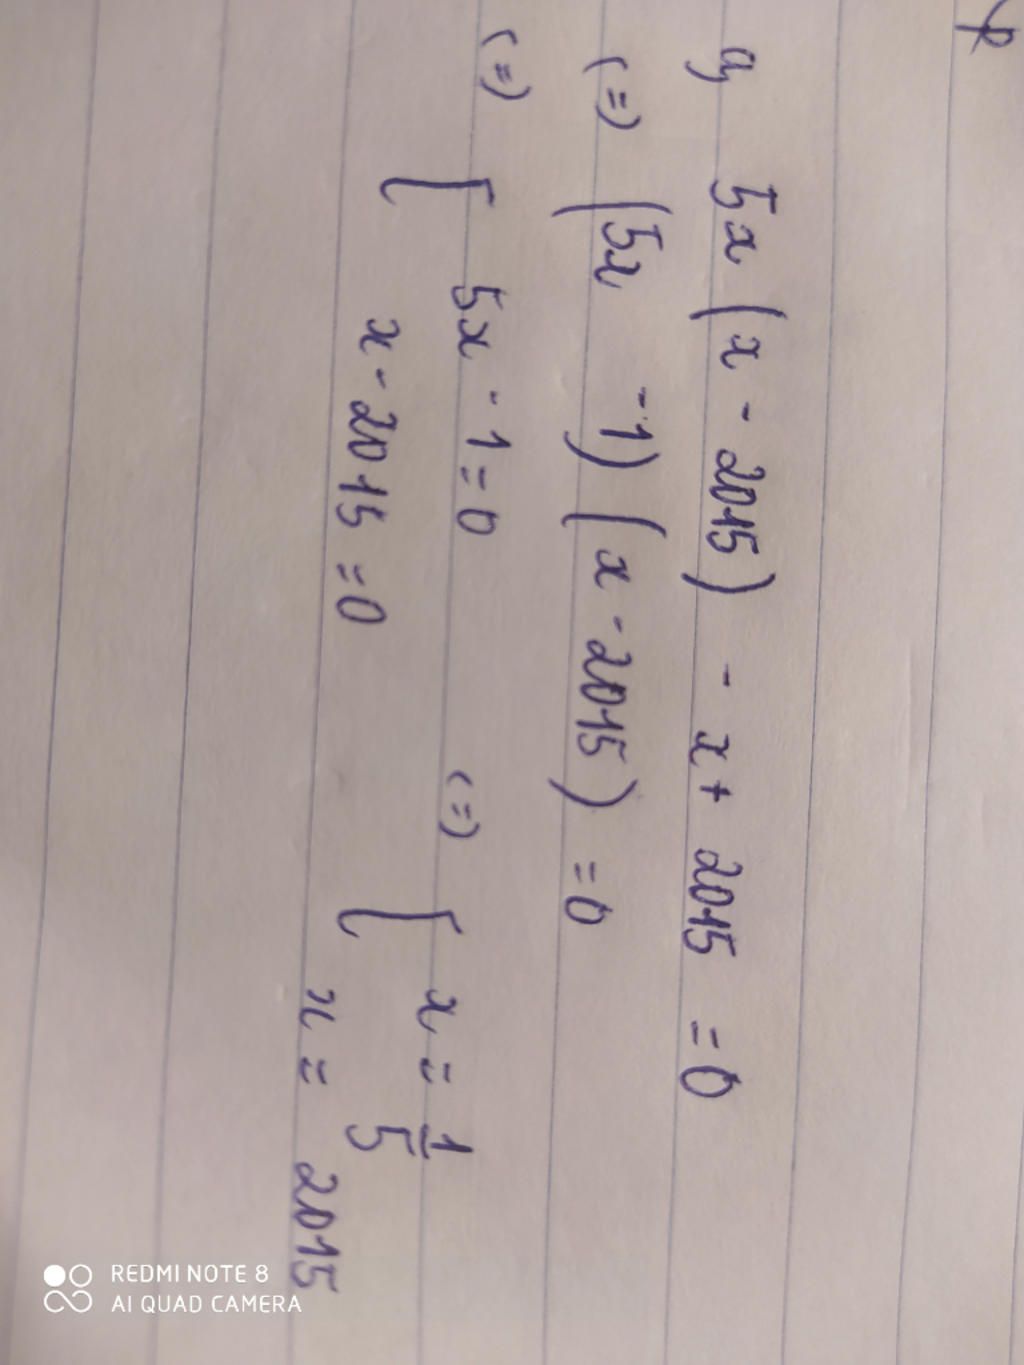 a, 5x (x - 2015) - x + 2015 = 0
(=) (5x - 1) (x - 2015) = 0
(=) [ 5x - 1 = 0 (=) [ x = 1/5
x - 2015 = 0 x = 2015
REDMI NOTE 8
AI QUAD CAMERA